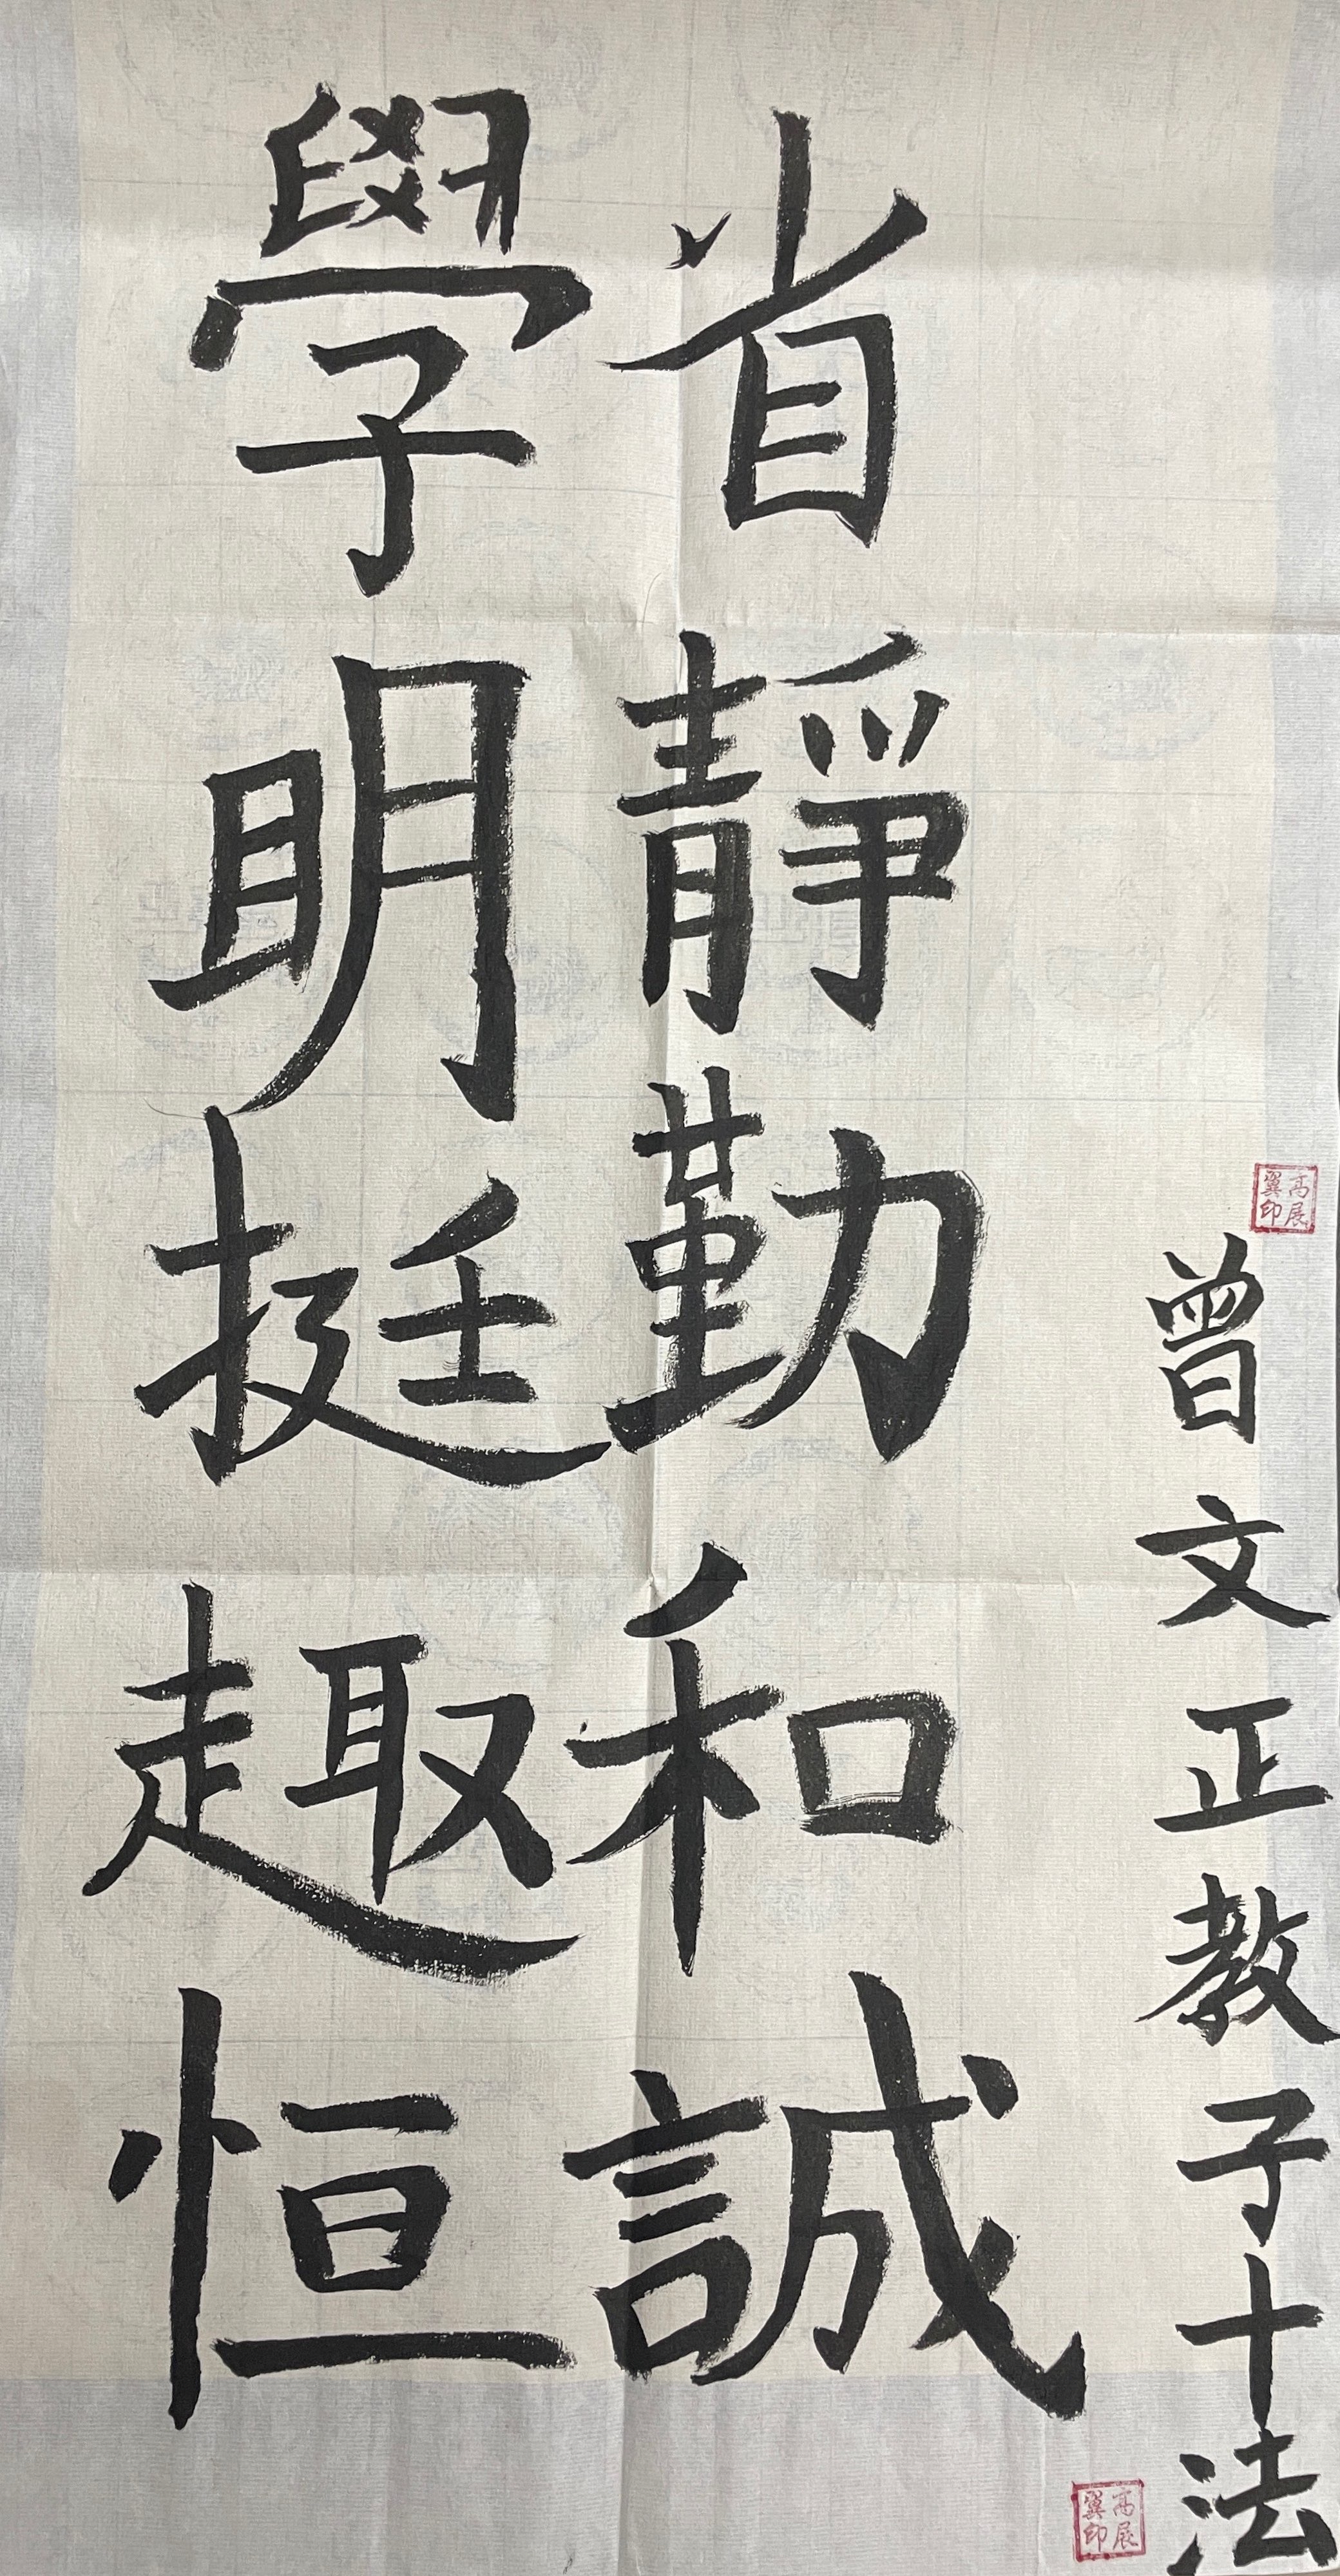 曾文正教子十法
省靜勤和誠
學明挺趣恒
高展翼印
高展翼印